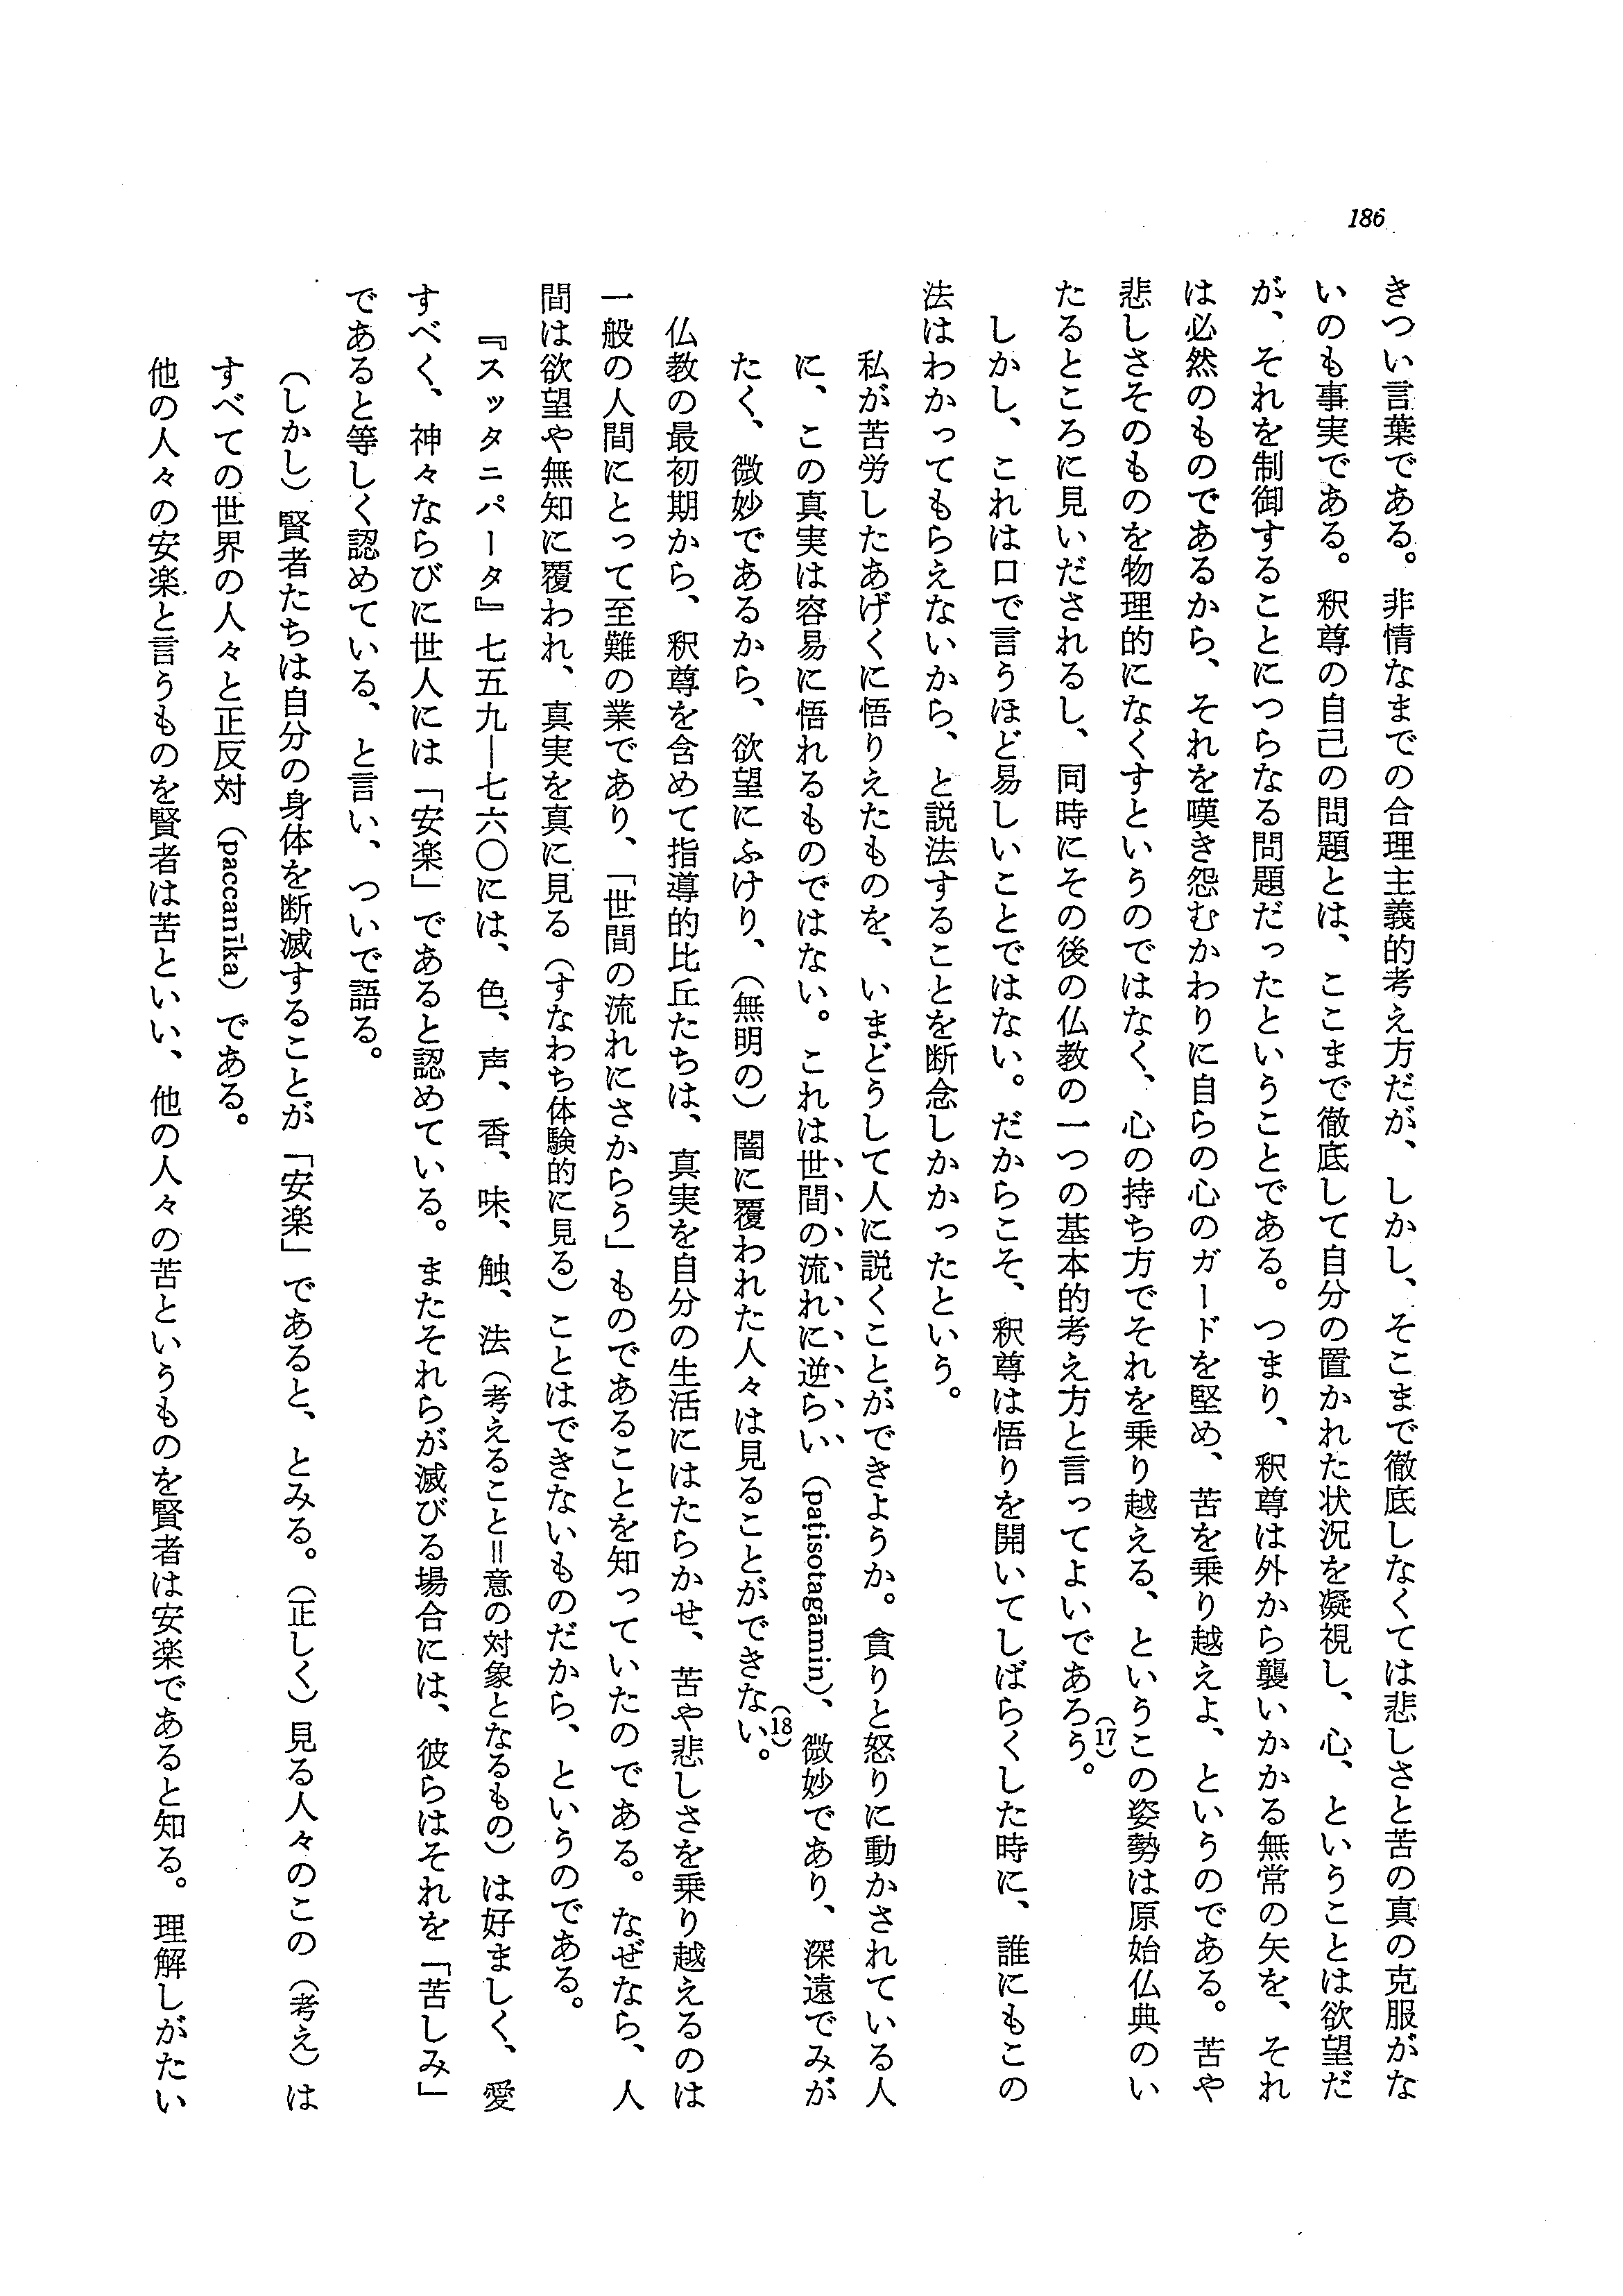 186
きつい言葉である。非情なまでの合理主義的考え方だが、しかし、そこまで徹底しなくては悲しさと苦の真の克服がな
いのも事実である。釈尊の自己の問題とは、ここまで徹底して自分の置かれた状況を凝視し、心、ということは欲望だ
が、それを制御することにつらなる問題だったということである。つまり、釈尊は外から襲いかかる無常の矢を、それ
は必然のものであるから、それを嘆き怨むかわりに自らの心のガードを堅め、苦を乗り越えよ、というのである。苦や
悲しさそのものを物理的になくすというのではなく、心の持ち方でそれを乗り越える、というこの姿勢は原始仏典のい
たるところに見いだされるし、同時にその後の仏教の一つの基本的考え方と言ってよいであろう。(17)
しかし、これは口で言うほど易しいことではない。だからこそ、釈尊は悟りを開いてしばらくした時に、誰にもこの
法はわかってもらえないから、と説法することを断念しかかったという。
私が苦労したあげくに悟りえたものを、いまどうして人に説くことができようか。貪りと怒りに動かされている人
に、この真実は容易に悟れるものではない。これは世間の流れに逆らい（paṭisotagāmin）、微妙であり、深遠でみが
たく、微妙であるから、欲望にふけり、（無明の）闇に覆われた人々は見ることができない。(18)
仏教の最初期から、釈尊を含めて指導的比丘たちは、真実を自分の生活にはたらかせ、苦や悲しさを乗り越えるのは
一般の人間にとって至難の業であり、「世間の流れにさからう」ものであることを知っていたのである。なぜなら、人
間は欲望や無知に覆われ、真実を真に見る（すなわち体験的に見る）ことはできないものだから、というのである。
『スッタニパータ』七五九—七六〇には、色、声、香、味、触、法（考えること＝意の対象となるもの）は好ましく、愛
すべく、神々ならびに世人には「安楽」であると認めている。またそれらが滅びる場合には、彼らはそれを「苦しみ」
であると等しく認めている、と言い、ついで語る。
（しかし）賢者たちは自分の身体を断滅することが「安楽」であると、とみる。（正しく）見る人々のこの（考え）は
すべての世界の人々と正反対（paccanīka）である。
他の人々の安楽と言うものを賢者は苦といい、他の人々の苦というものを賢者は安楽であると知る。理解しがたい